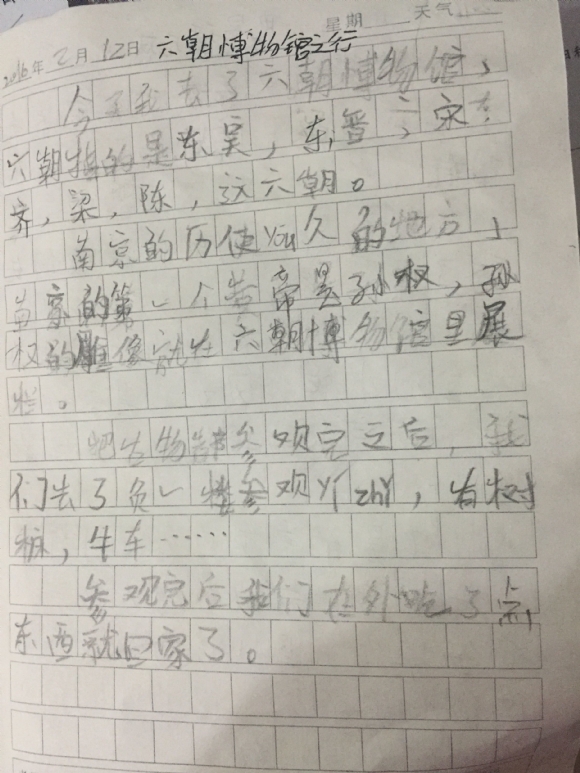 星期 天气
2016年2月12日 六朝博物馆之行
今天我去了六朝博物馆,
六朝指的是东吴,东晋,宋
齐,梁,陈,这六朝。
南京的历使you久的地方,
的第一个皇帝是孙权,孙
权的雕像就在六朝博物馆里展
栏。
把 物 参观完之后,我
们去了负一楼参观yí zhǐ,有树
桩,牛车……
参观完后我们在外吃了点
东西就回家了。